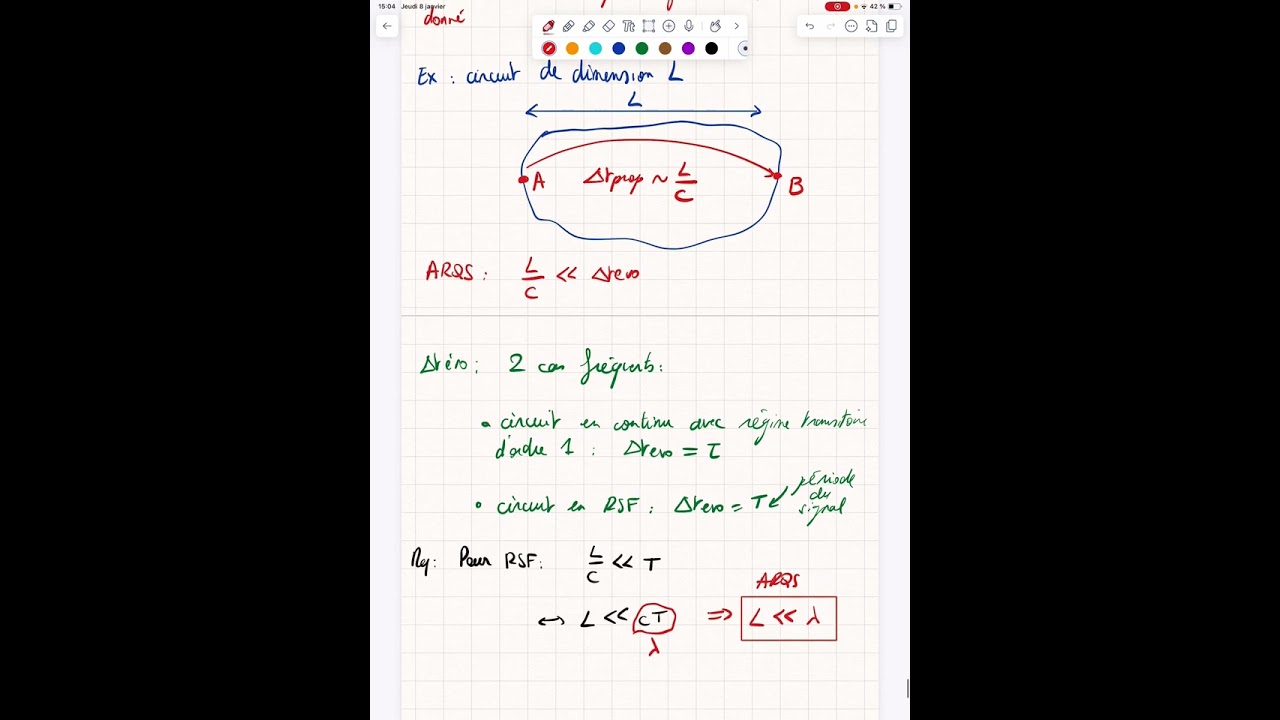 15:04 Jeudi 8 janvier
42 %
donné
Ex : circuit de dimension L
L
A
Δtprop ~ L/C
B
ARQS : L/C << Δtevo
Δtévo : 2 cas fréquents :
• circuit en continu avec régime transitoire
d'ordre 1 : Δtevo = τ
• circuit en RSF : Δtevo = T
période
du
signal
Rq : Pour RSF : L/C << T
ARQS
↔ L << cT ⇒ L << λ
λ